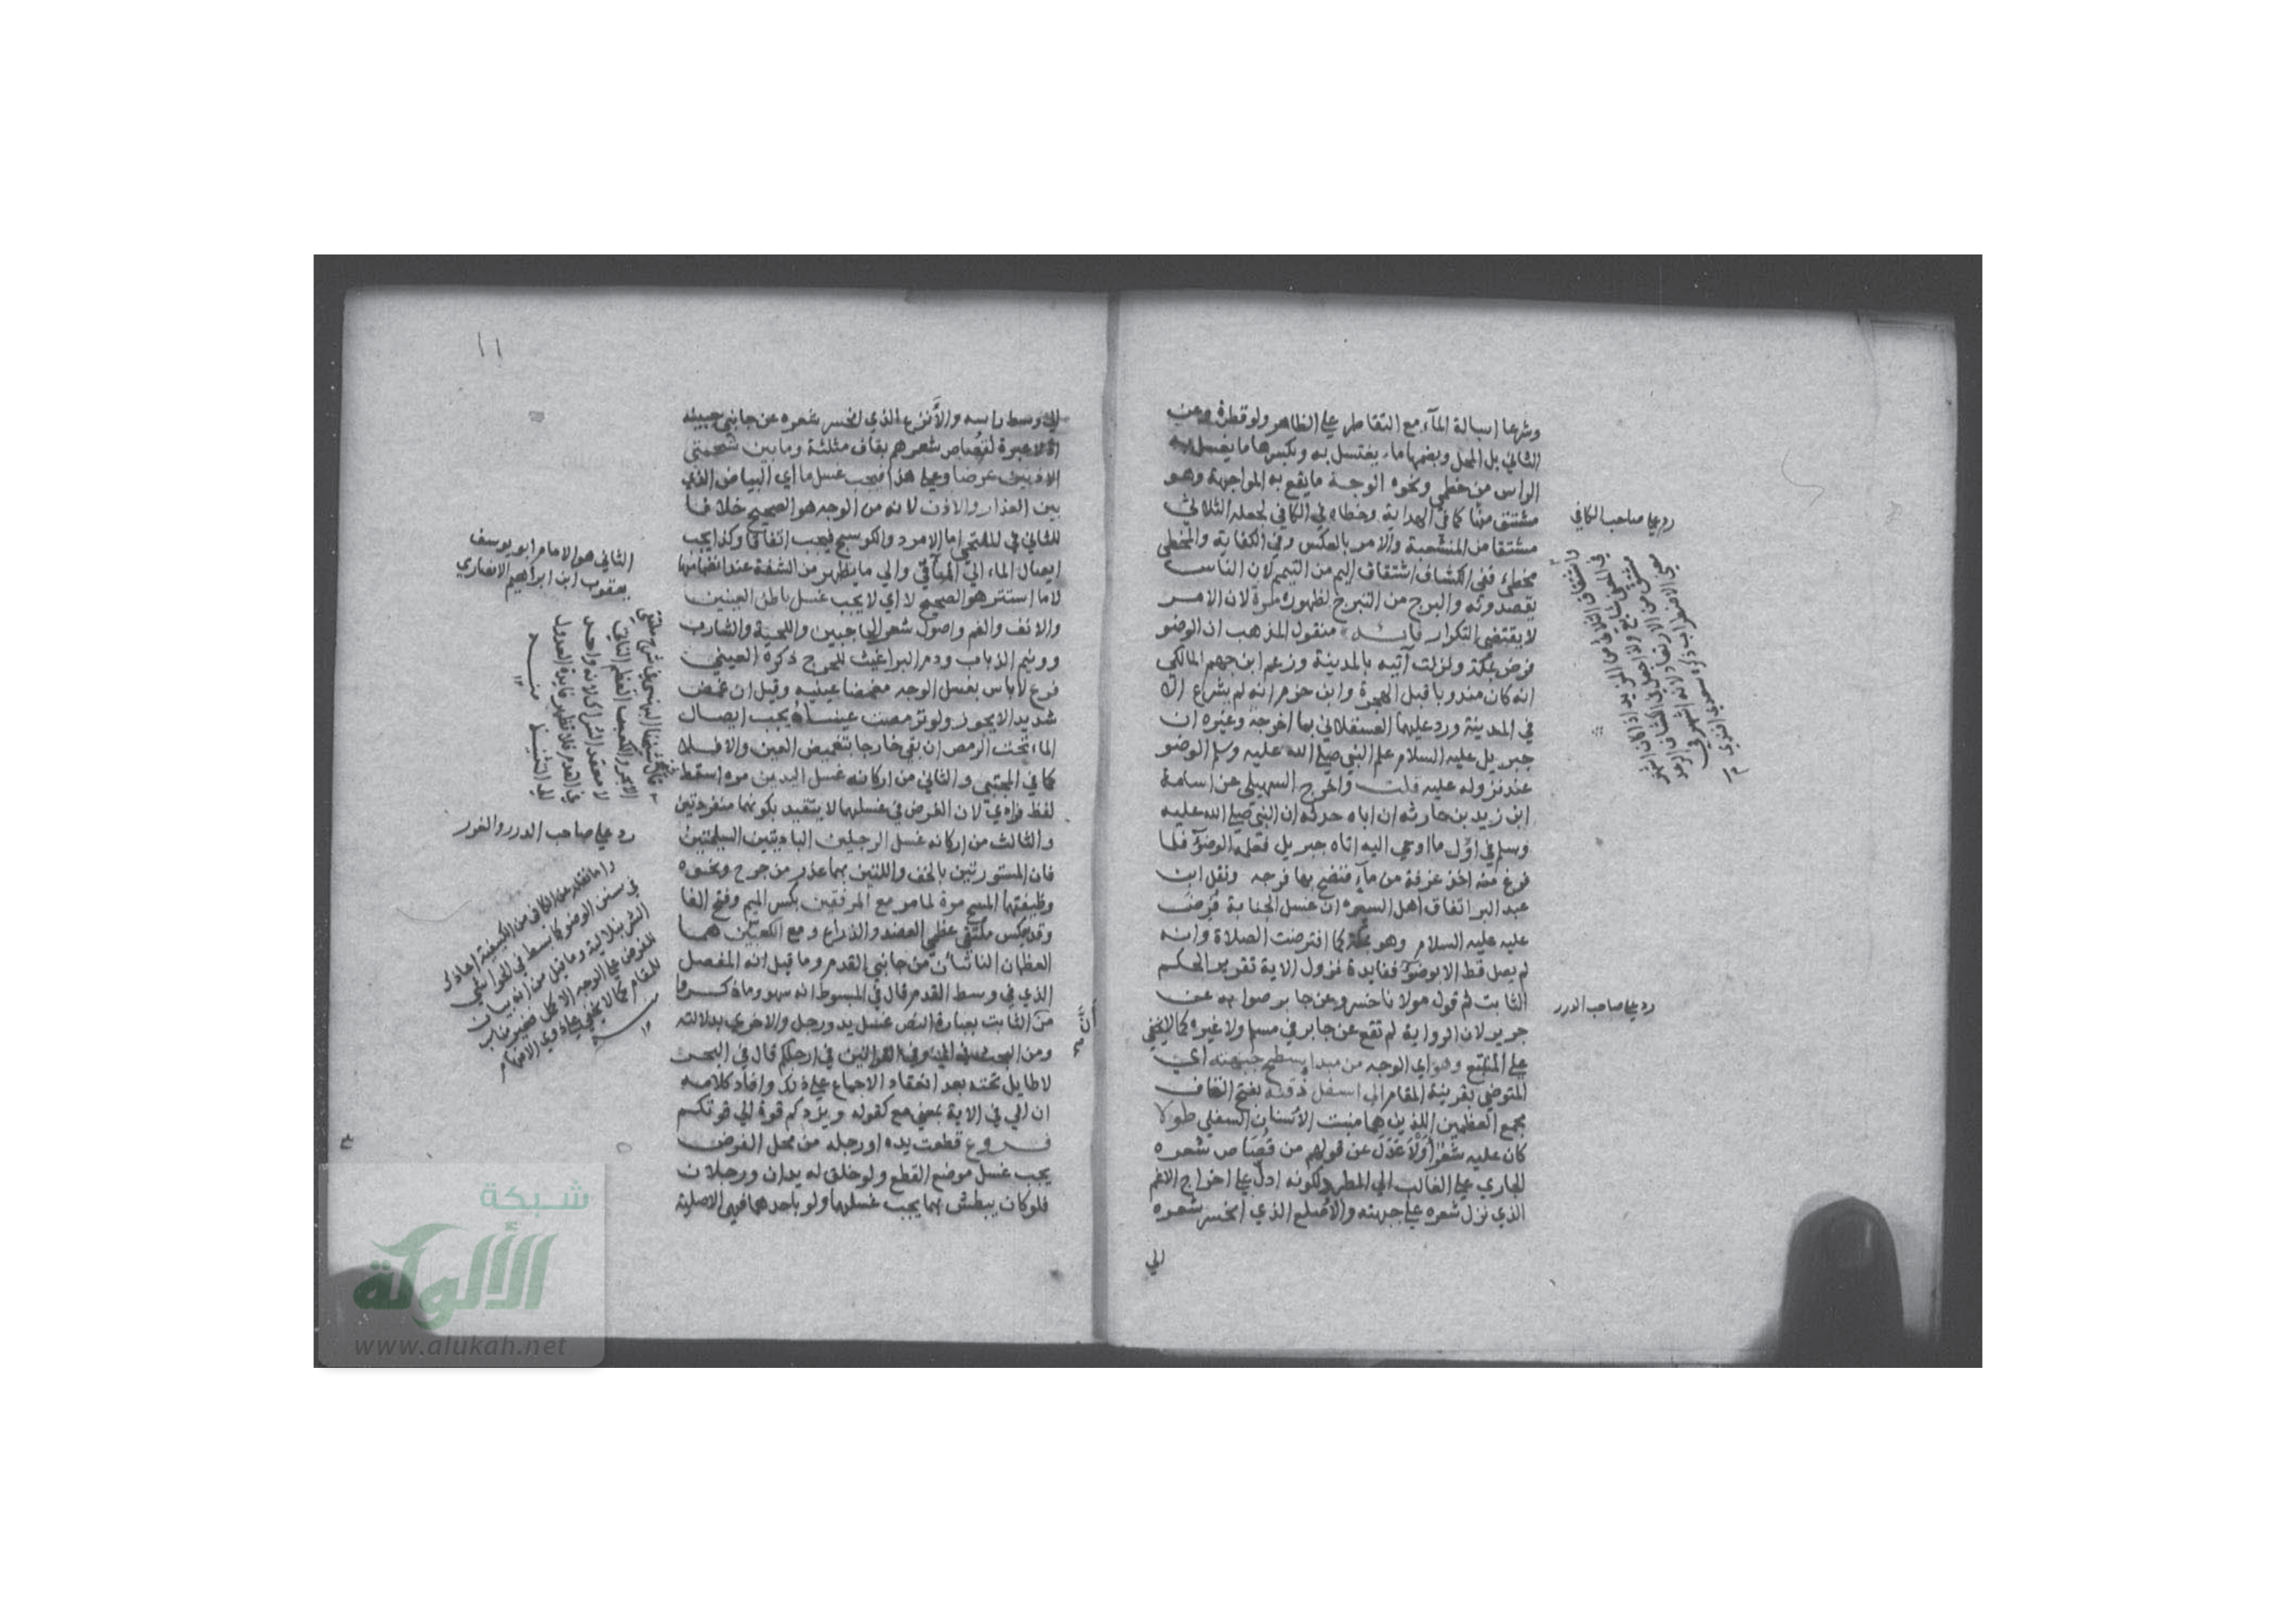 وشرعا اسالة المآء مع التقاطر علي الظاهر ولو قطرة وعن
الثاني بل المحل وبضمها ماء يغتسل به وبكسرها ما يغسل به
الراس من خطمي ونحوه الوجه ما يقع به المواجهة وهو
مشتق منها كما في الهداية وخطاه في الكافي لجعله الثلاثي
مشتقا من المنشعبة والامر بالعكس وفي الكفاية والمخطي
مخطئ ففي الكشاف اشتقاق اليم من التيمم لان الناس
يقصدونه والبرج من التبرج لظهوره مرة لان الامر
لا يقتضي التكرار فائدة منقول المذهب ان الوضو
فرض بمكة ونزلت آتيه بالمدينة وزعم ابن جهم المالكي
انه كان مندوبا قبل الهجرة وابن حزم انه لم يشرع الا
في المدينة ورد عليهما العسقلاني بما اخرجه وغيره ان
جبريل عليه السلام علم النبي صلي الله عليه وسلم الوضو
عند نزوله عليه قلت واخرج السهيلي عن اسامة
ابن زيد بن حارثه ان اباه حدثه ان النبي صلي الله عليه
وسلم في اوّل ما اوحي اليه اتاه جبريل فعلمه الوضوء فلما
فرغ منه اخذ غرفة من مآء فنضح بها فرجه ونقل ابن
عبد البر اتفاق اهل السير ان غسل الجنابة فرض
عليه عليه السلام وهو بمكة كما افترضت الصلاة وانه
لم يصل قط الا بوضوء ففايدة نزول الاية تقرير الحكم
الثابت ثم قول مولانا خسرو عن جابر صوابه عن
جرير لان الرواية لم تقع عن جابر في مسلم ولا غيره كما لا يخفي
علي المتتبع وهو اي الوجه من مبدا سطح جبهته اي
المتوضي بقرينة المقام الي اسفل ذقنه بفتح القاف
مجمع العظمين اللذين هما منبت الاسنان السفلي طولا
كان عليه شَعْرٌ أَوْ لَا عَدَلَ عن قولهم من قصاص شعره
الجاري علي الغالب الي المطرد لكونه ادل علي اخراج الاغم
الذي نزل شعره علي جبهته والاصلع الذي انحسر شعره
الي
رد علي صاحب الكافي
رد علي صاحب الدرر
١١
الي وسط راسه والأَنزع الذي انحسر شعره عن جانبي جبينه
اذ لا عبرة لقصاص شعرهم بقاف مثلثة وما بين شحمتي
الاذنين عرضا وعلي هذا فيجب غسل ما اي البياض الذي
بين العذار والاذن لانه من الوجه هو الصحيح خلافا
للثاني في الملتحي اما الامرد والكوسج فيجب اتفاقا وكذا يجب
ايصال الماء الي المآقي والي ما يظهر من الشفة عند انضمامها
لا ما استتر هو الصحيح لا اي لا يجب غسل باطن العينين
والانف والفم واصول شعر الحاجبين واللحية والشارب
وونيم الذباب ودم البراغيث للحرج ذكره العيني
فرع لا باس بغسل الوجه مغمضا عينيه وقيل ان غمض
شديدا لا يجوز ولو ترمصت عيناه يجب ايصال
الماء تحت الرمص ان بقي خارجا بتغميض العين والا فلا
كما في المجتبي والثاني من اركانه غسل اليدين مره اسقط
لفظ فرادي لان الفرض في غسلهما لا يتقيد بكونهما منفردتين
والثالث من اركانه غسل الرجلين الباديتين السليمتين
فان المستورتين بالخف واللتين بهما عذر من جرح ونحوه
وظيفتهما المسح مرة لما مر مع المرفقين بكسر الميم وفتح الفا
وقد يعكس ملتقي عظمي العضد والذراع ومع الكعبين هما
العظمان الناشزان من جانبي القدم وما قيل انه المفصل
الذي في وسط القدم قال في المبسوط انه سهو وما ذكروا
من الثابت بعبارة النص غسل يد ورجل والاخري بدلالته
ومن البحث في الي وفي القراتين في ارجلكم قال في البحر
لا طايل تحته بعد انعقاد الاجماع علي ذلك وافاد كلامه
ان الي في الاية بمعني مع كقوله ويزدكم قوة الي قوتكم
فروع قطعت يده او رجله من محل الفرض
يجب غسل موضع القطع ولو خلق له يدان ورجلان
فلو كان يبطش بهما يجب غسلهما ولو باحدهما فهي الاصلية
الثاني هو الامام ابو يوسف
يعقوب ابن ابراهيم الانصاري
رد علي صاحب الدرر والغرر
شبكة
الألوكة
www.alukah.net